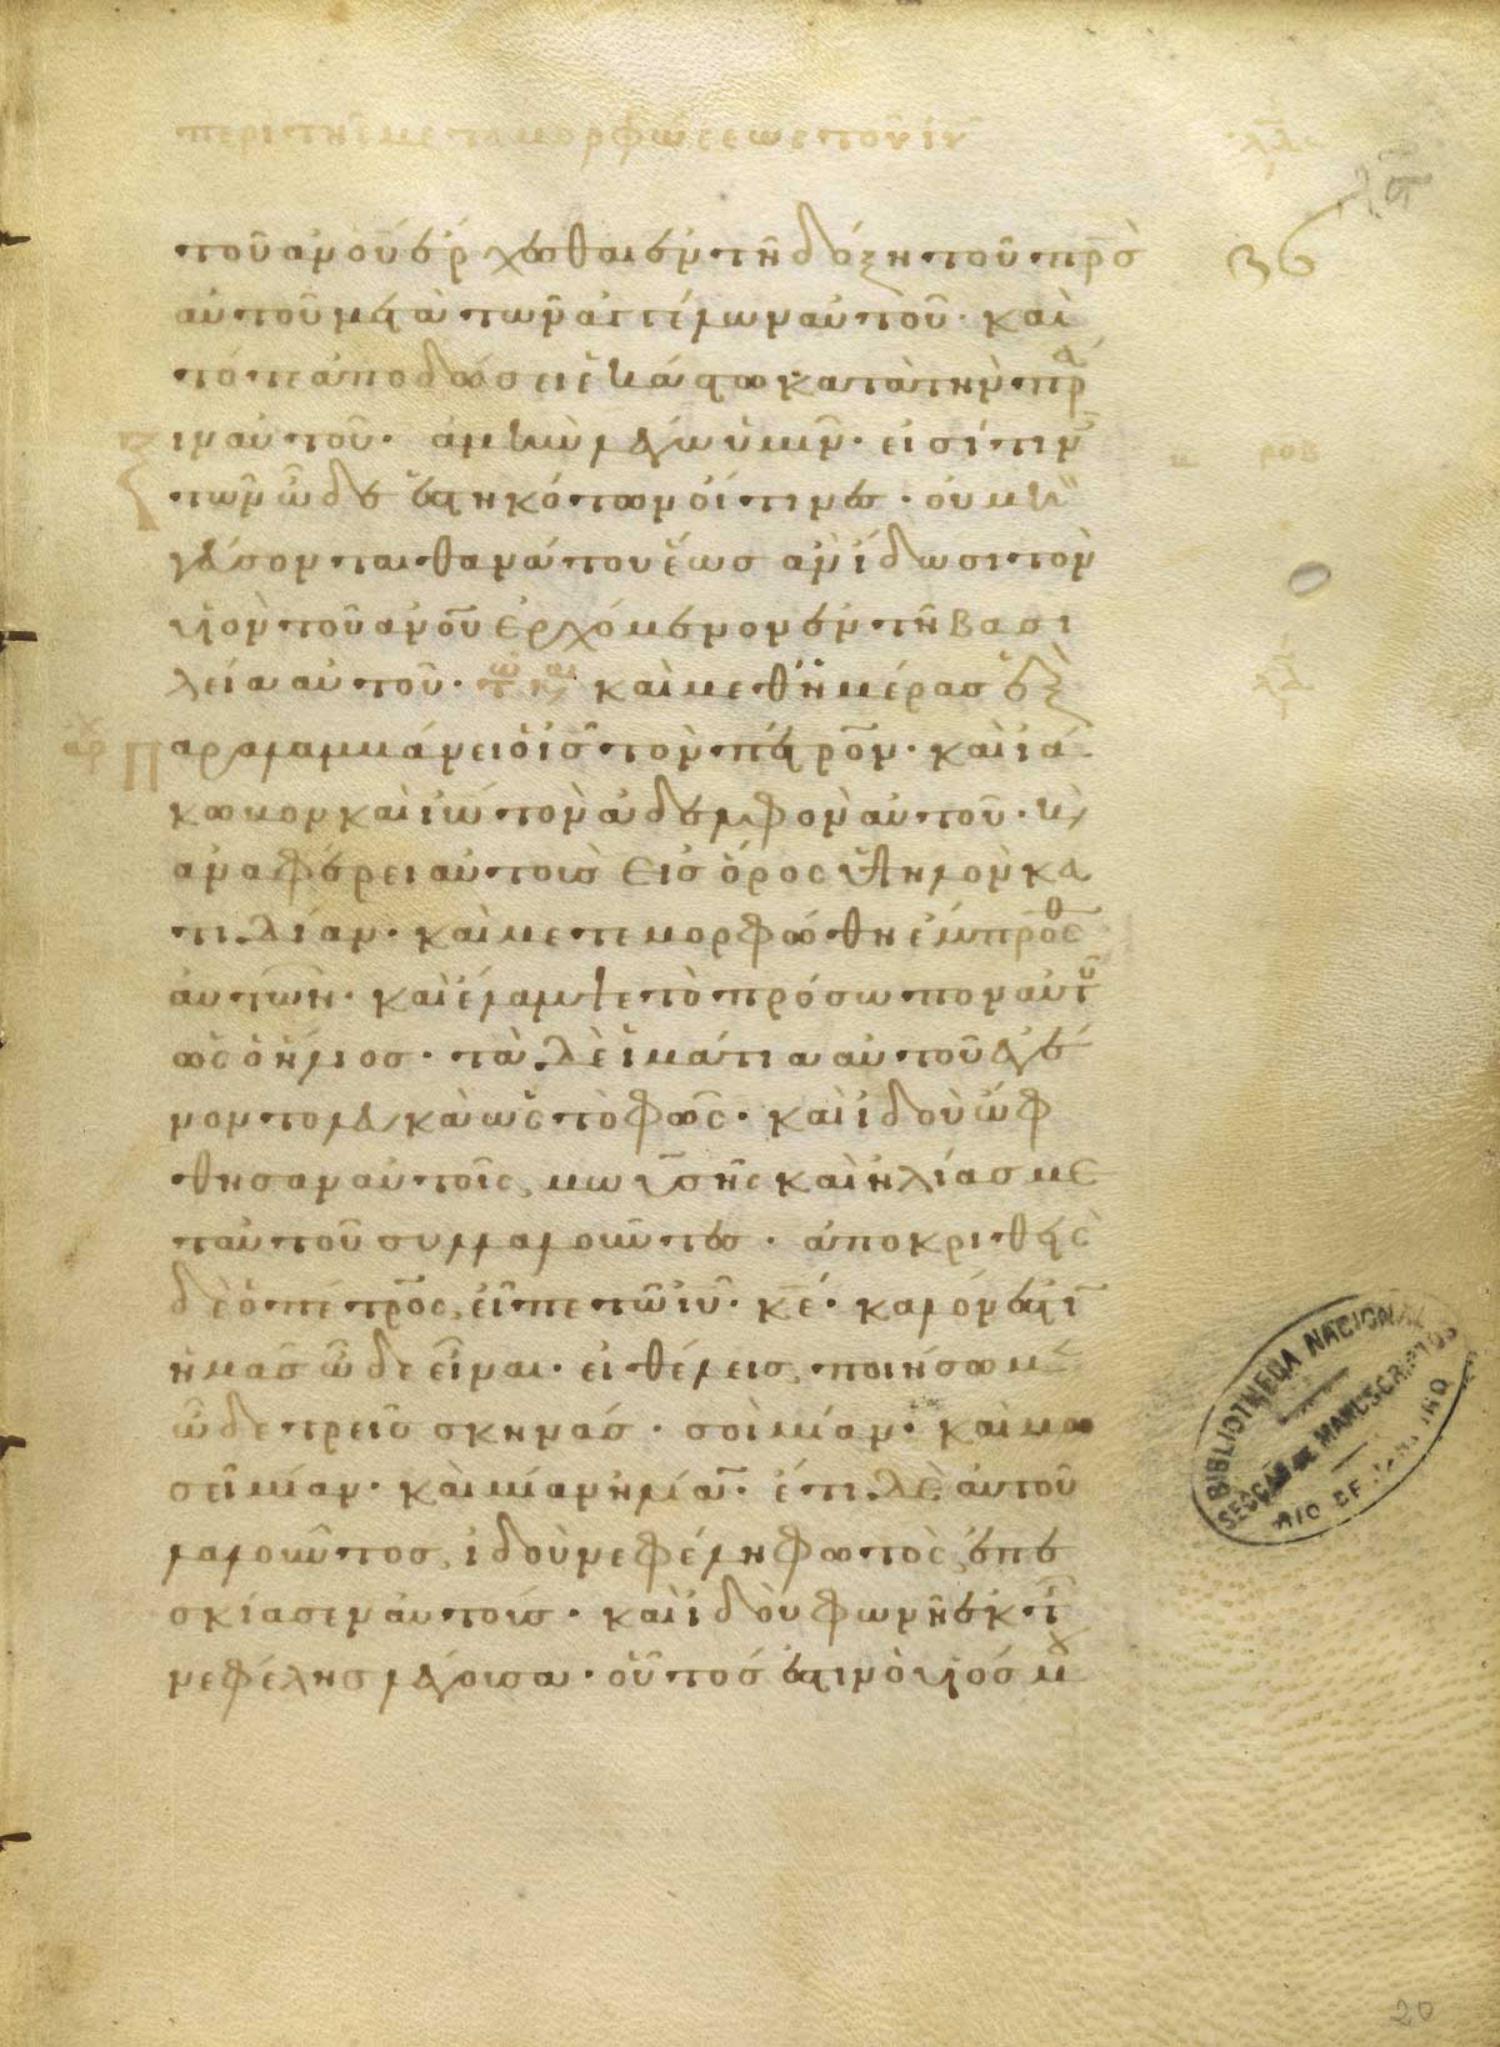 περι της μεταμορφώσεως τοῦ ιυ
λδ
36
τοῦ ανοῦ ἔρχεσθαι ἐν τῆ δόξη τοῦ πρσ
αὐτοῦ μετὰ τῶν ἀγγέλων αὐτοῦ· καὶ
τότε ἀποδώσει ἑκάστω κατὰ τὴν πρα
ιν αὐτοῦ· ἀμὴν λέγω ὑμῖν· εἰσί τιν
τῶν ὧδε ἑστηκότων οἵτινες· οὐ μὴ
γεύσονται θανάτου ἕως ἀν ἴδωσι τὸν
υἱὸν τοῦ ανοῦ ἐρχόμενον ἐν τῆ βασι
λεία αὐτοῦ· καὶ μεθ ἡμέρας ἓξ
Παραλαμβάνει ὁ ις τὸν πέτρον· καὶ ἰά
κωβον καὶ ιω τὸν ἀδελφὸν αὐτοῦ· κ
ἀναφέρει αὐτοὺς εἰς ὄρος ὑψηλὸν κα
τιδίαν· καὶ μετεμορφώθη ἔμπροσθ
αὐτῶν· καὶ ἔλαμψε τὸ πρόσωπον αὐτ
ὡς ὁ ἥλιος· τὰ δὲ ἱμάτια αὐτοῦ ἐγέ
νοντο λευκὰ ὡς τὸ φῶς· καὶ ἰδοὺ ὤφ
θησαν αὐτοῖς, μωυσῆς καὶ ἠλίας με
τ αὐτοῦ συλλαλοῦντες· ἀποκριθεὶς
δὲ ὁ πέτρος, εἶπε τῶ ιυ· κε· καλόν ἐστι
ἡμᾶς ὧδε εἶναι· εἰ θέλεις, ποιήσωμ
ὧδε τρεῖς σκηνάς· σοὶ μίαν· καὶ μω
σεῖ μίαν· καὶ μίαν ἠλία· ἔτι δὲ αὐτοῦ
λαλοῦντος, ἰδοὺ νεφέλη φωτὸς, ἐπε
σκίασεν αὐτούς· καὶ ἰδοὺ φωνὴ ἐκ τ
νεφέλης λέγουσα· οὗτός ἐστιν ὁ υἱός μ
BIBLIOTHECA NACIONAL
SECCAO DE MANUSCRIPTOS
RIO DE JANEIRO
20